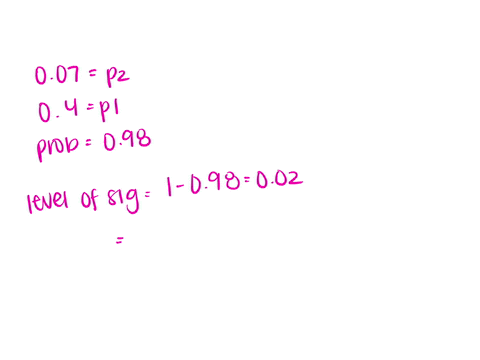 0.07 = p2
0.4 = p1
prob = 0.98
level of sig = 1 - 0.98 = 0.02
=